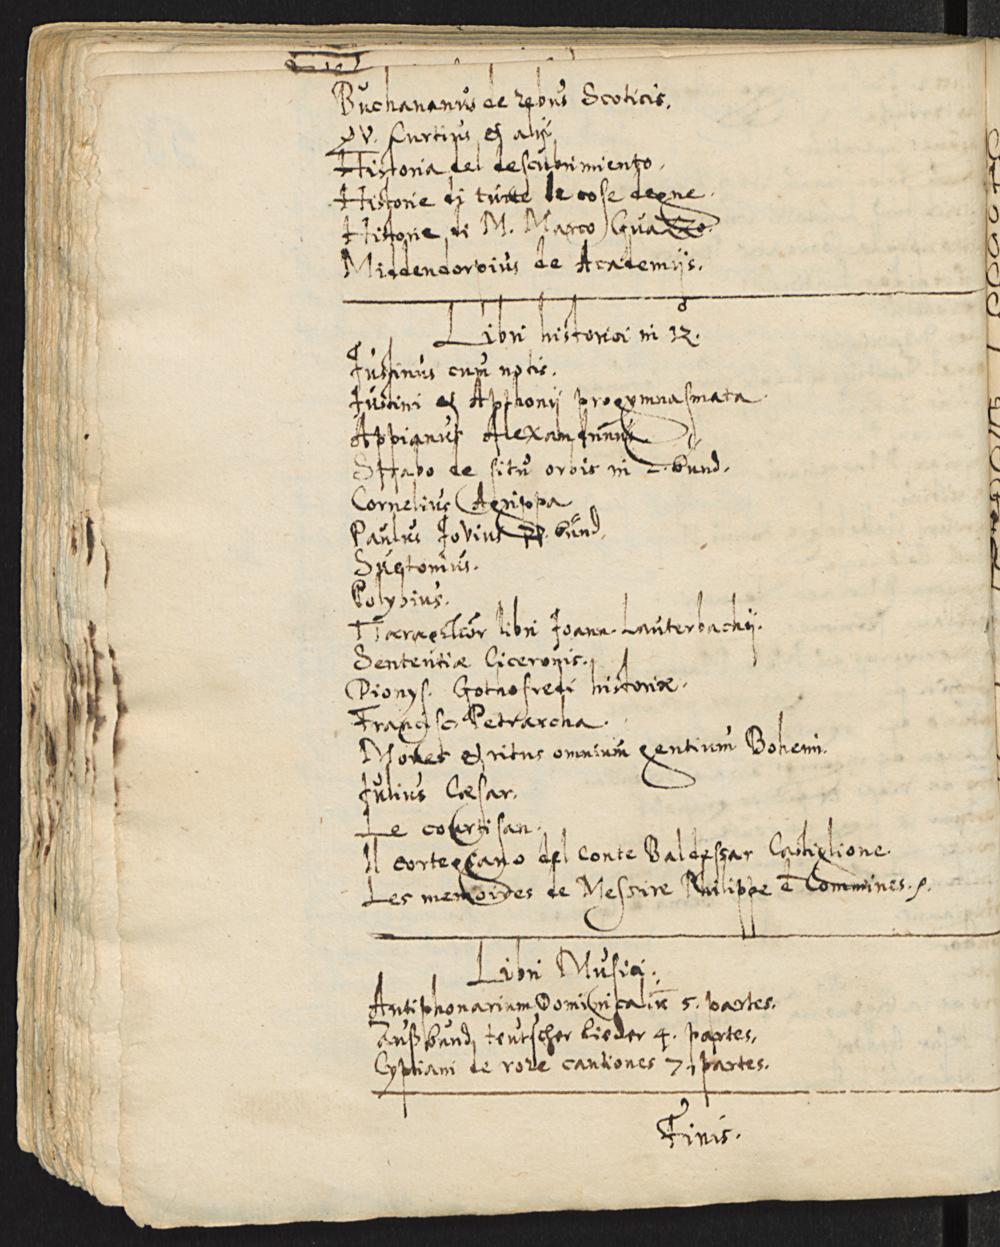 Buchananus de rebus Scoticis.
Curtius et alij
Historia del descubrimiento.
Historie di tutte le cose degne.
Historie di M. Marco Guazzo.
Middendorpius de Academijs.
Libri historici in 12.
Justinus cum notis.
Justini et Apthonij progymnasmata
Appianus Alexandrinus
Strabo de situ orbis in 2. bund.
Cornelius Agrippa
Paulus Jovius bund.
Suetonius.
Polybius.
libri Joann. Lauterbachij.
Sententiæ Ciceronis.
Dionys. Gothofredi historiæ.
Francisc. Petrarcha.
Mores et ritus omnium gentium Bohemi.
Julius Cæsar.
Le courtisan.
Il cortegiano del conte Baldessar Castiglione.
Les memoires de Messire Philippe de Commines.
Libri Musici.
Antiphonarium Dominicalis 5. partes.
Außbund teutscher lieder 4. partes.
Cypriani de rore cantiones 7. partes.
Finis.